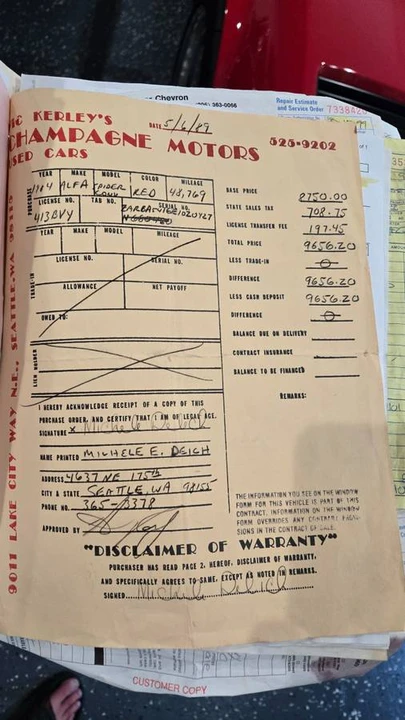 Chevron
363-0066
Repair Estimate
and Service Order
KERLEY'S
DATE 5/6/89
CHAMPAGNE MOTORS
525-9202
USED CARS
9011 LAKE CITY WAY N.E., SEATTLE, WA
YEAR MAKE MODEL COLOR MILEAGE
1984 ALFA SPIDER CONV RED 48,769
LICENSE NO. TAB NO. SERIAL NO.
413BVY
PURCHASE
YEAR MAKE MODEL MILEAGE
LICENSE NO. SERIAL NO.
ALLOWANCE NET PAYOFF
TRADE-IN
OWED TO:
LIEN HOLDER
BASE PRICE 2750.00
STATE SALES TAX 708.75
LICENSE TRANSFER FEE 197.45
TOTAL PRICE 9656.20
LESS TRADE-IN 0
DIFFERENCE 9656.20
LESS CASH DEPOSIT 9656.20
DIFFERENCE 0
BALANCE DUE ON DELIVERY
CONTRACT INSURANCE
BALANCE TO BE FINANCED
REMARKS:
I HEREBY ACKNOWLEDGE RECEIPT OF A COPY OF THIS
PURCHASE ORDER, AND CERTIFY THAT I AM OF LEGAL AGE.
SIGNATURE x Michele Deich
NAME PRINTED MICHELE E. DEICH
ADDRESS 4637 NE 175th
CITY & STATE SEATTLE, WA 98155
PHONE NO. 365-8378
APPROVED BY
THE INFORMATION YOU SEE ON THE WINDOW
FORM FOR THIS VEHICLE IS PART OF THIS
CONTRACT. INFORMATION ON THE WINDOW
FORM OVERRIDES ANY CONTRARY PROVI-
SIONS IN THE CONTRACT OF SALE.
"DISCLAIMER OF WARRANTY"
PURCHASER HAS READ PAGE 2. HEREOF. DISCLAIMER OF WARRANTY,
AND SPECIFICALLY AGREES TO SAME. EXCEPT AS NOTED IN REMARKS.
SIGNED Michele Deich
CUSTOMER COPY